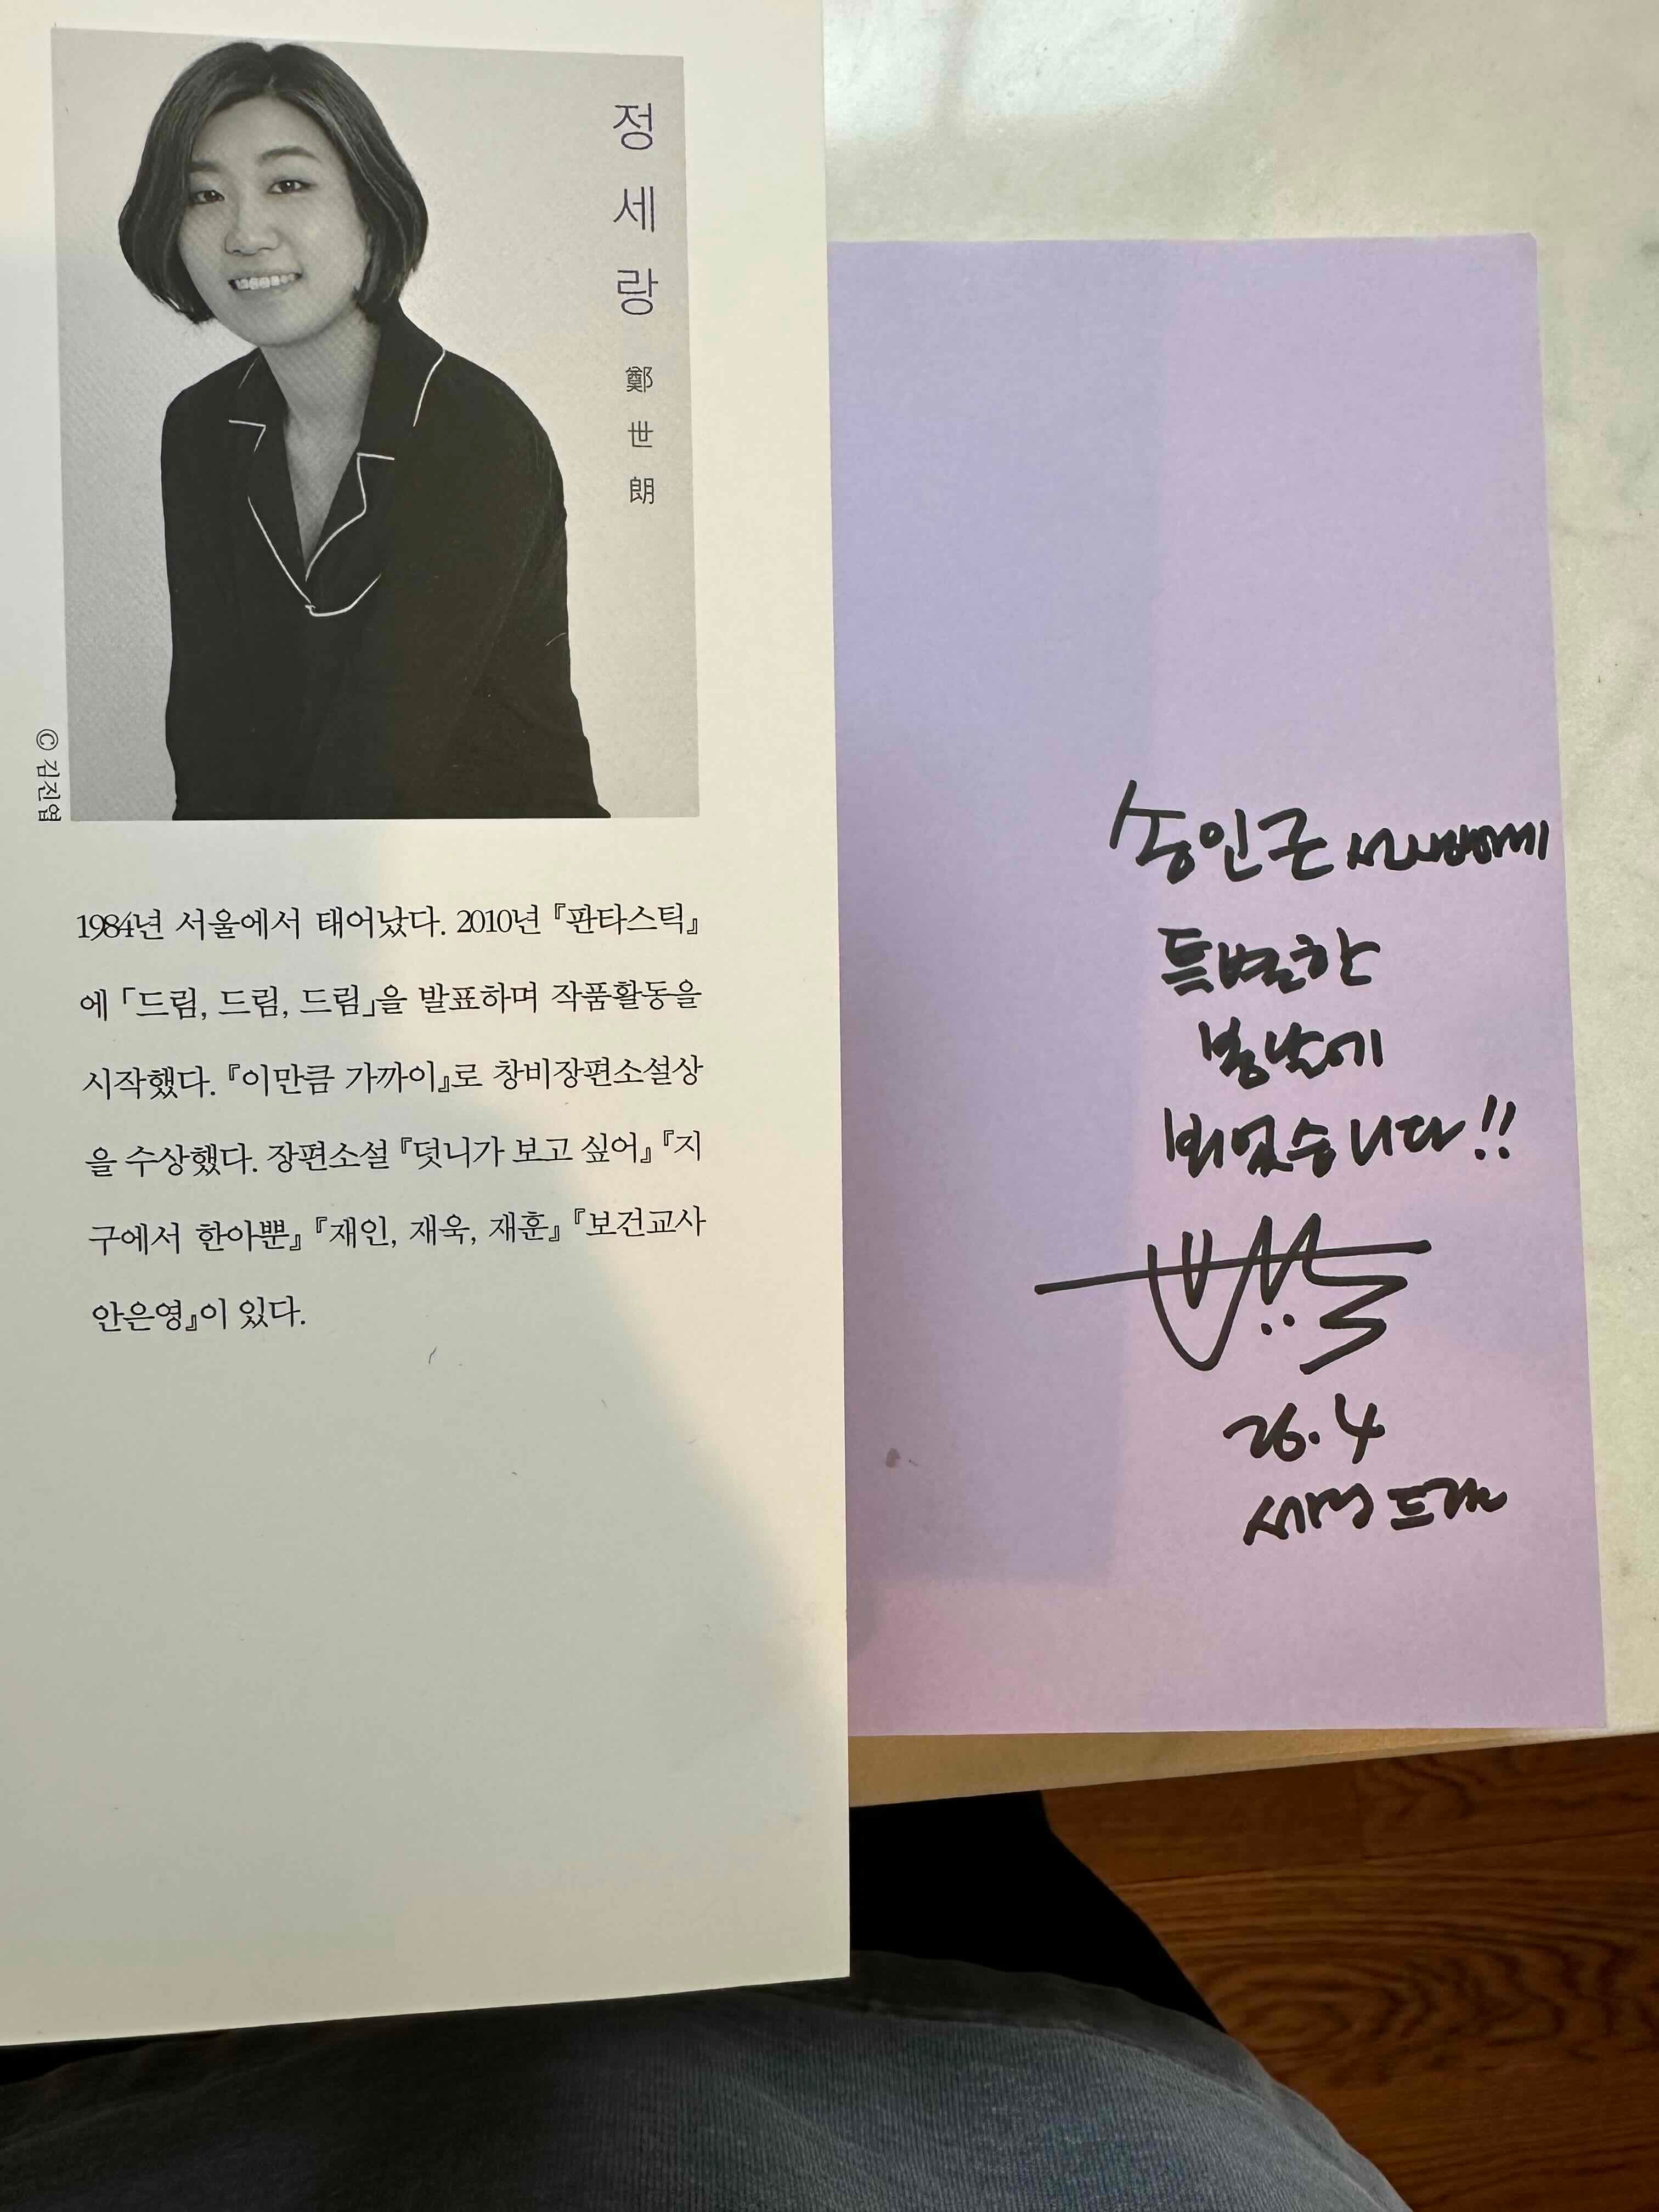 정세랑
鄭世朗
© 김진엽
1984년 서울에서 태어났다. 2010년 『판타스틱』
에 「드림, 드림, 드림」을 발표하며 작품활동을
시작했다. 『이만큼 가까이』로 창비장편소설상
을 수상했다. 장편소설 『덧니가 보고 싶어』 『지
구에서 한아뿐』 『재인, 재욱, 재훈』 『보건교사
안은영』이 있다.
송인근 선생님께
특별한
봄날에
뵈었습니다!!
26. 4
세랑 드림